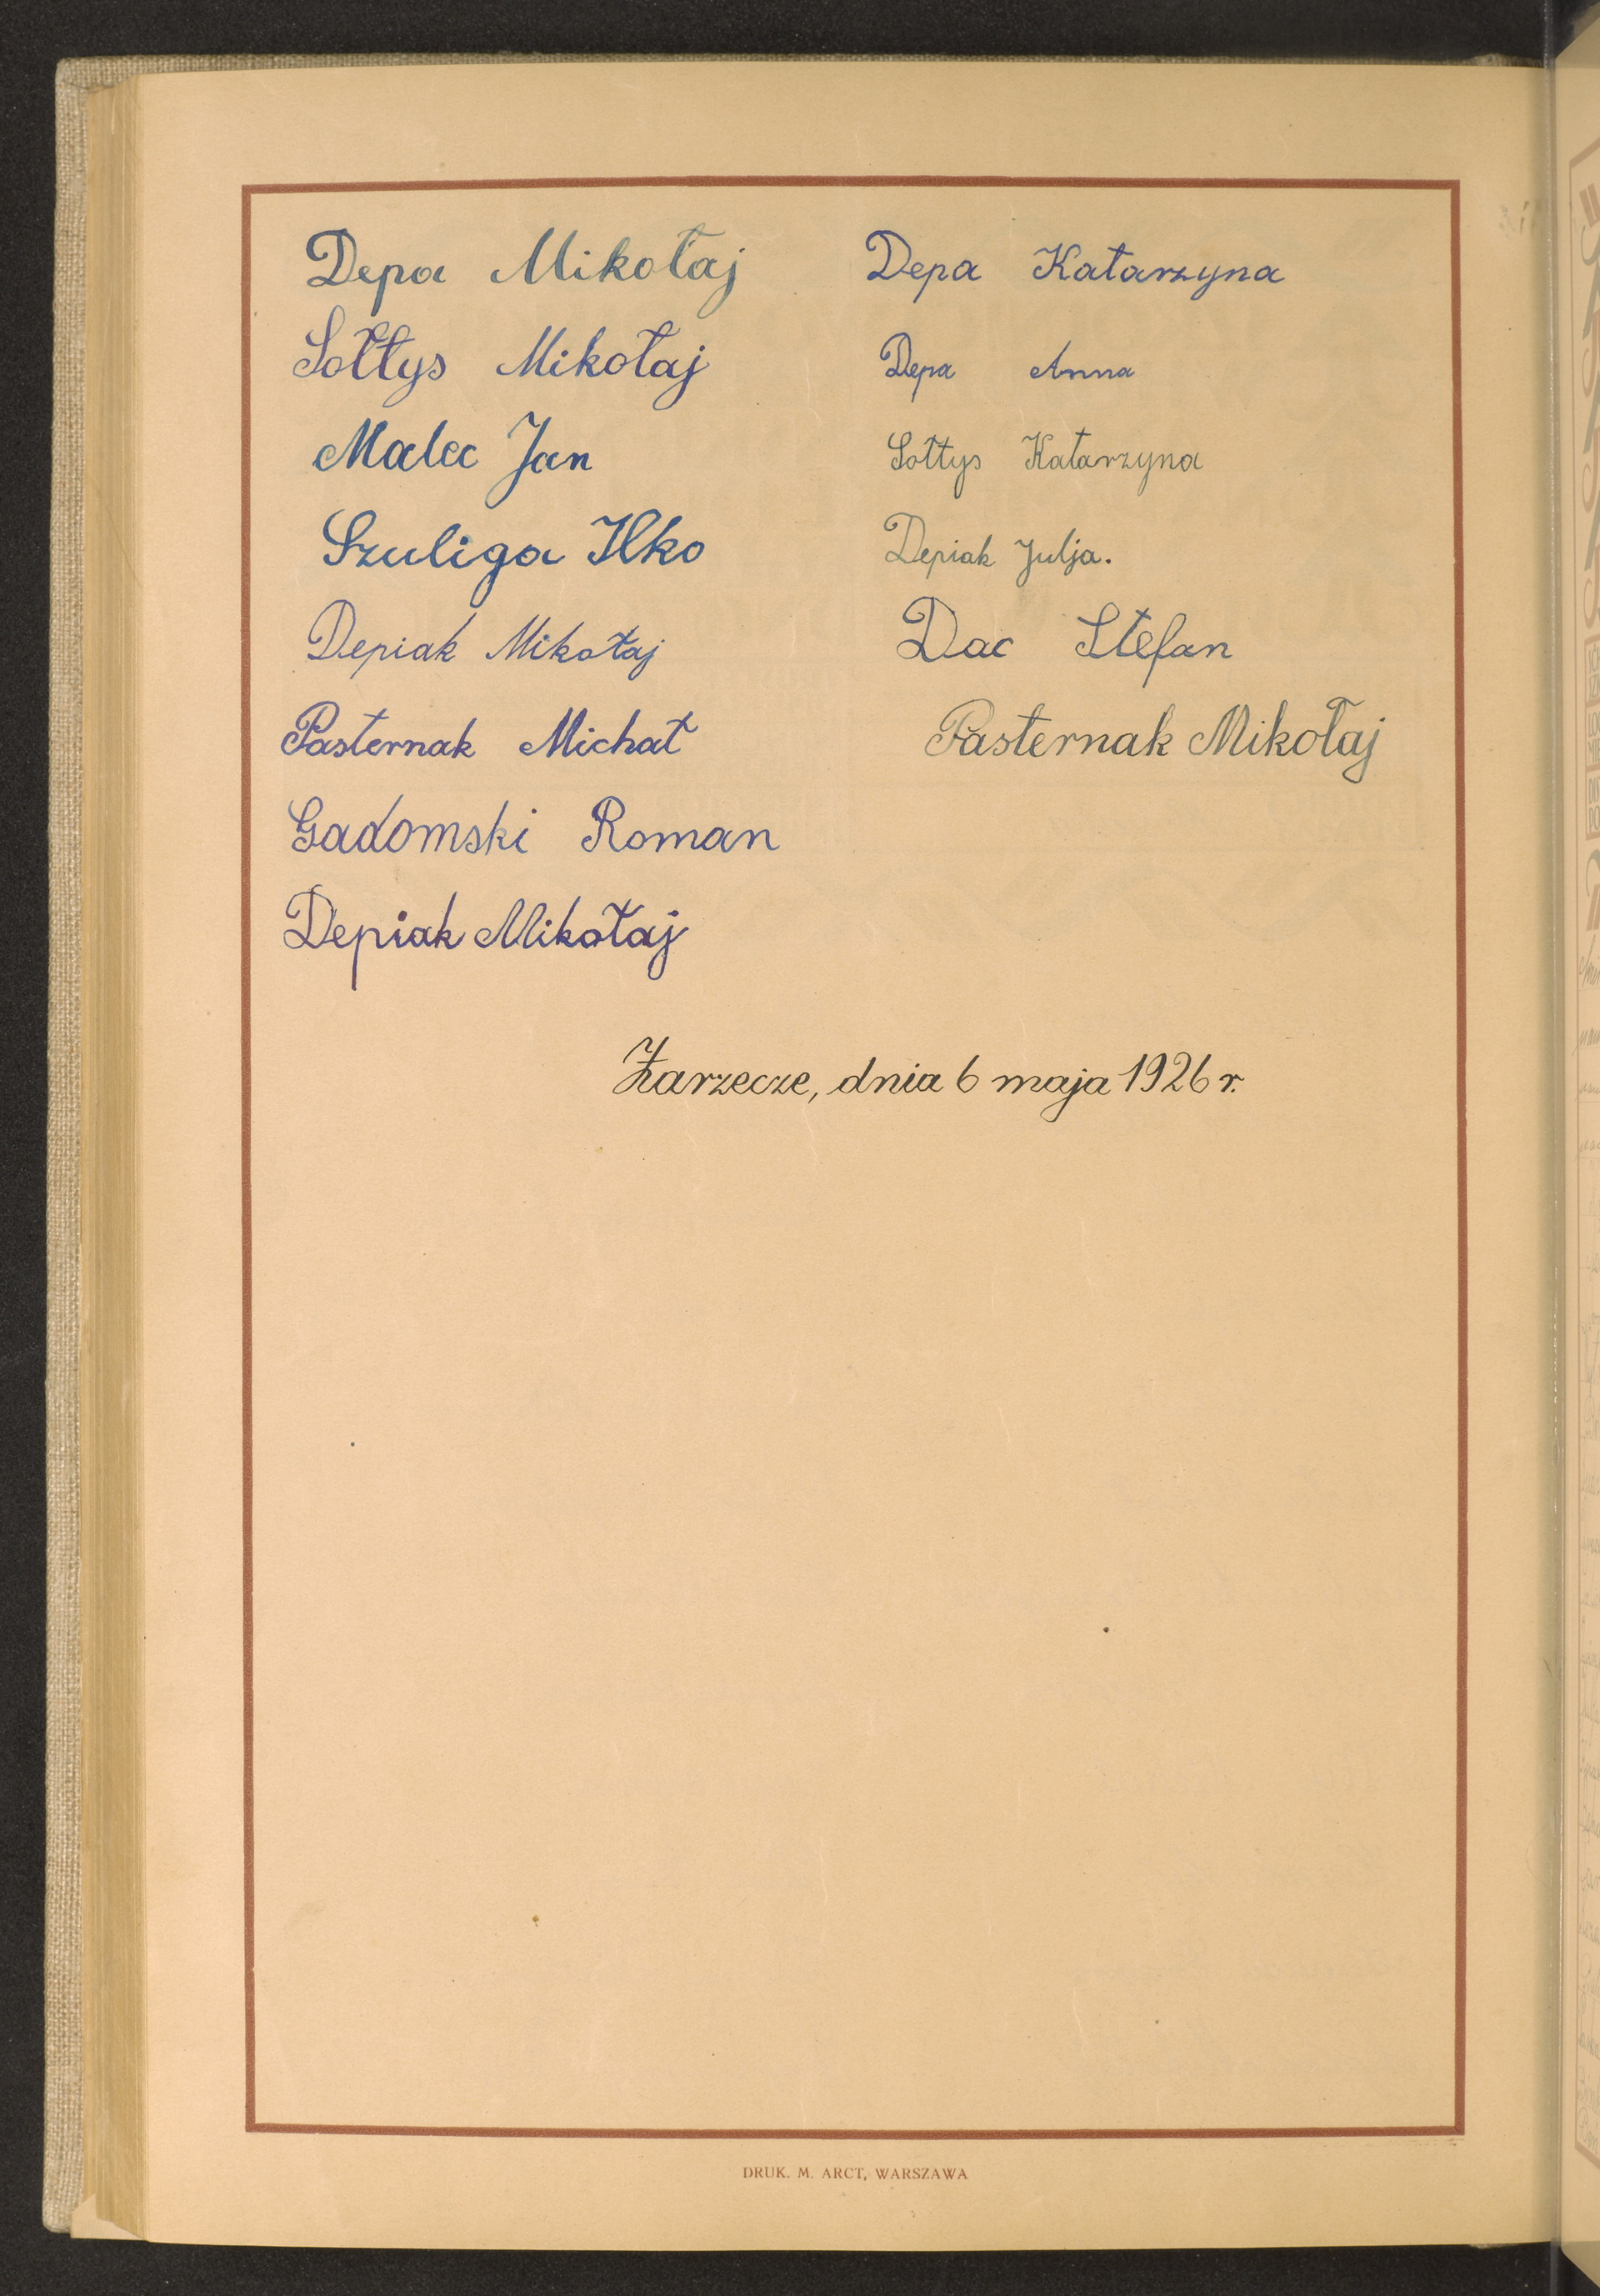 Depa Mikołaj
Sołtys Mikołaj
Malec Jan
Szuliga Ilko
Depiak Mikołaj
Pasternak Michał
Gadomski Roman
Depiak Mikołaj
Depa Katarzyna
Depa Anna
Sołtys Katarzyna
Depiak Julja.
Dac Stefan
Pasternak Mikołaj
Zarzecze, dnia 6 maja 1926 r.
DRUK. M. ARCT, WARSZAWA